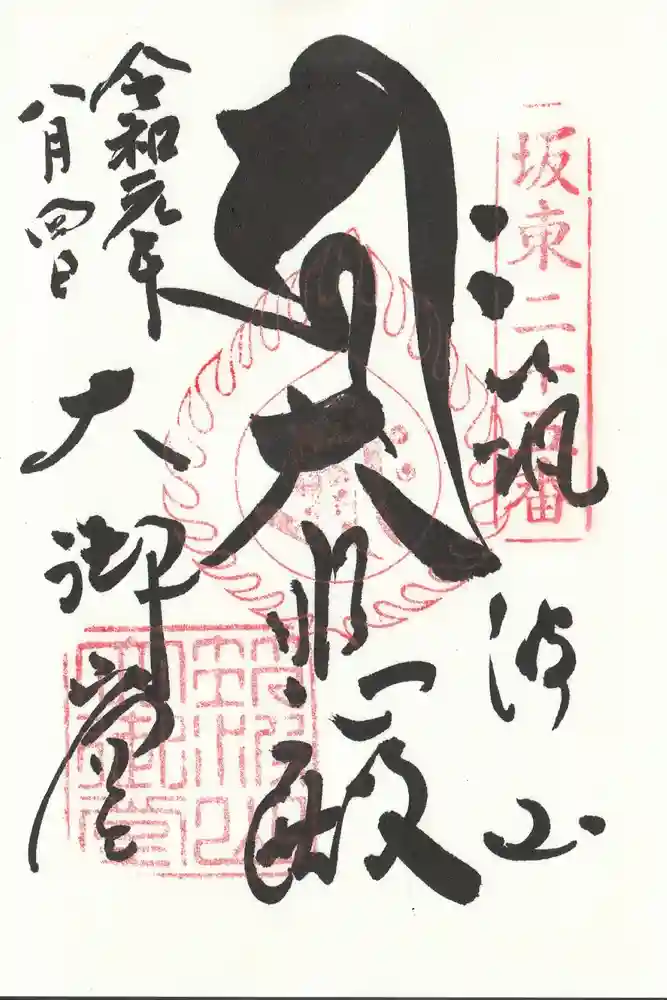 坂東二十五番
筑波山
大悲殿
令和元年
八月四日
大御堂